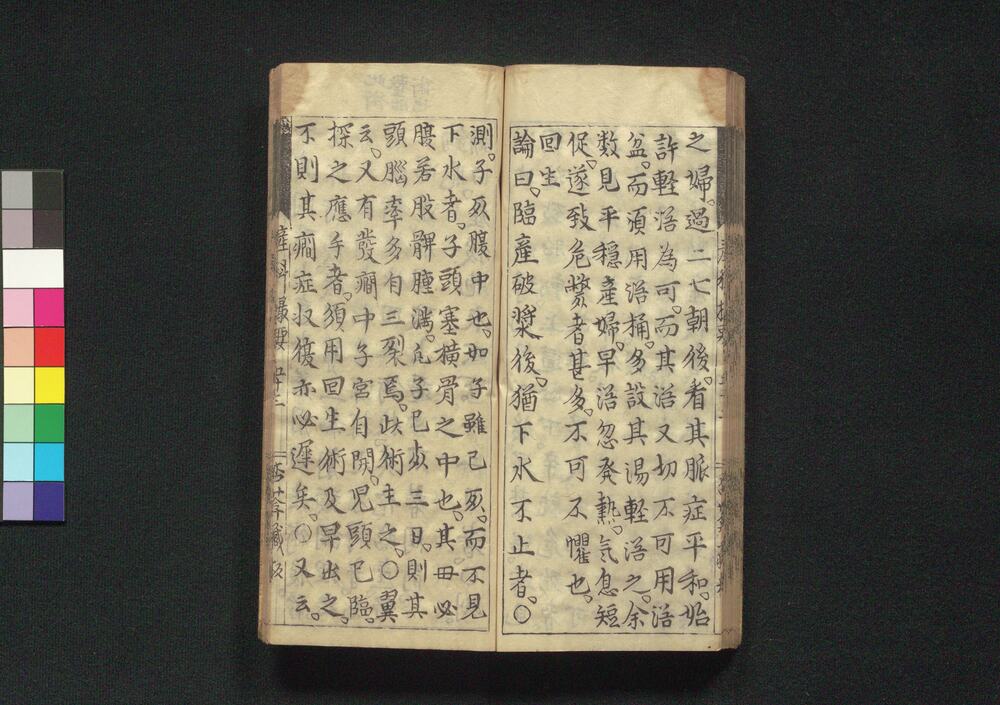 之婦。過二七朝後。看其脈症平和。始
許軽浴為可。而其浴又切不可用浴
盆。而須用浴桶。多設其湯軽浴之。余
数見平穏産婦。早浴忽発熱。気息短
促。遂致危斃者甚多。不可不懼也。
回生
論曰。臨産破漿後。猶下水不止者。○
測。子死腹中也。如子雖已死。而不見
下水者。子頭塞横骨之中也。其母必
腹若股髀腫満。凡子已死三日。則其
頭脳率多有三裂焉。此術主之。○翼
云。又有発癇中子宮自開。児頭已臨。
探之應手者。須用回生術及早出之。
不則其癇症収復亦必遅矣。○又云。
産科撮要